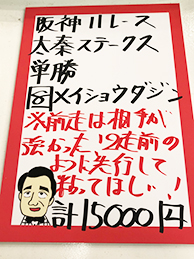 阪神11レース
太秦ステークス
単勝
⑧メイショウダジン
※前走は相手が
強かった!2走前の
ように先行して
粘ってほしい!
計15000円